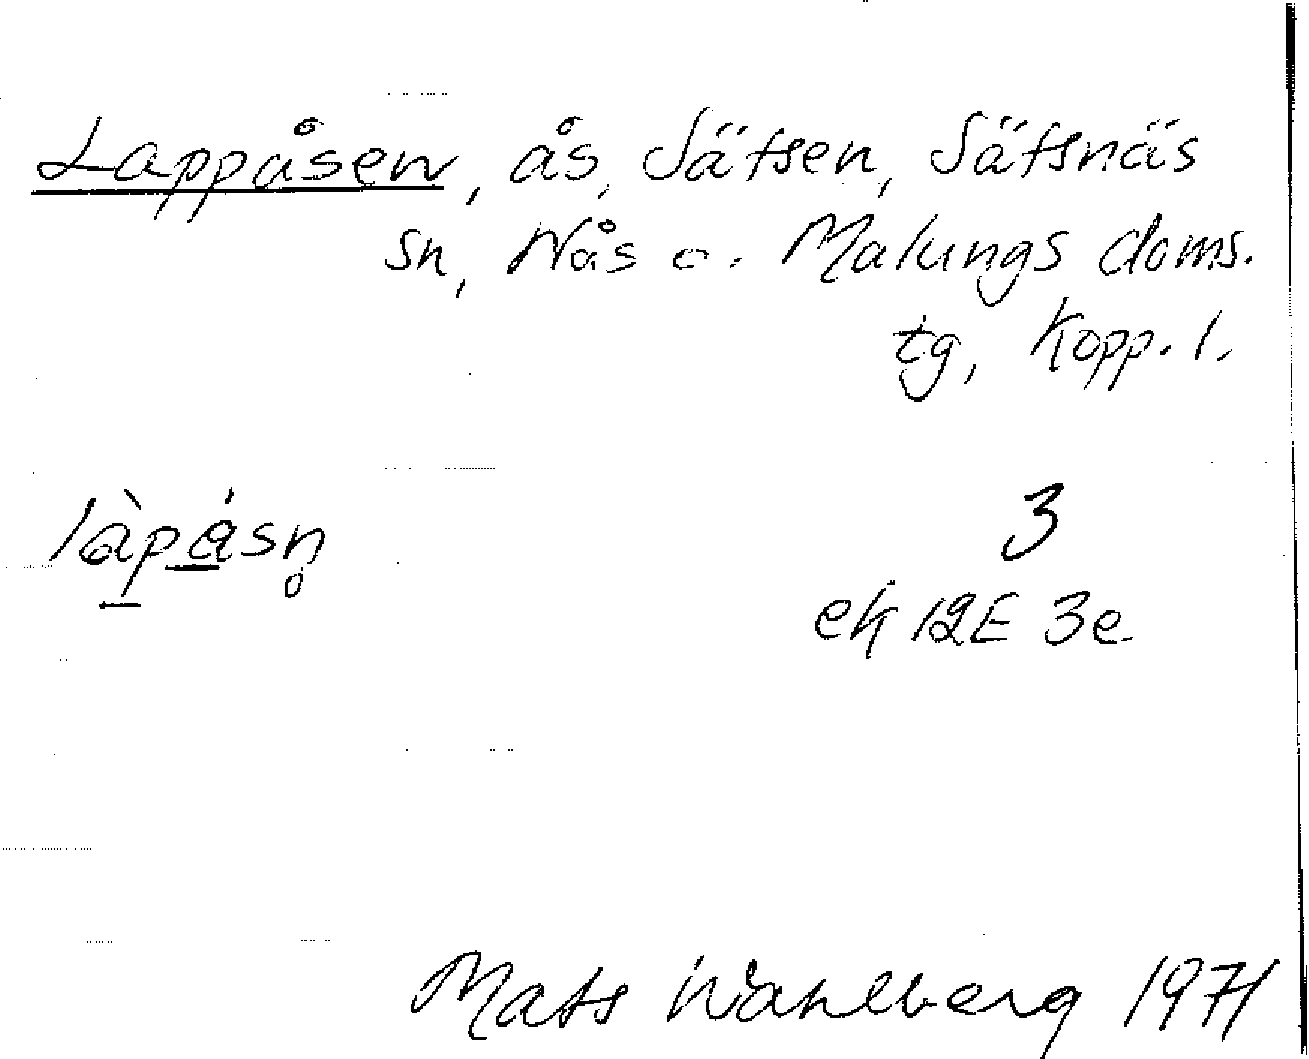 Lappåsen, ås, Sätsen, Sätsnäs
sn, Nås o. Malungs doms.
tg, Kopp. l.
làpåsn̥
3
ek 12E 3e
Mats Wahlberg 1971